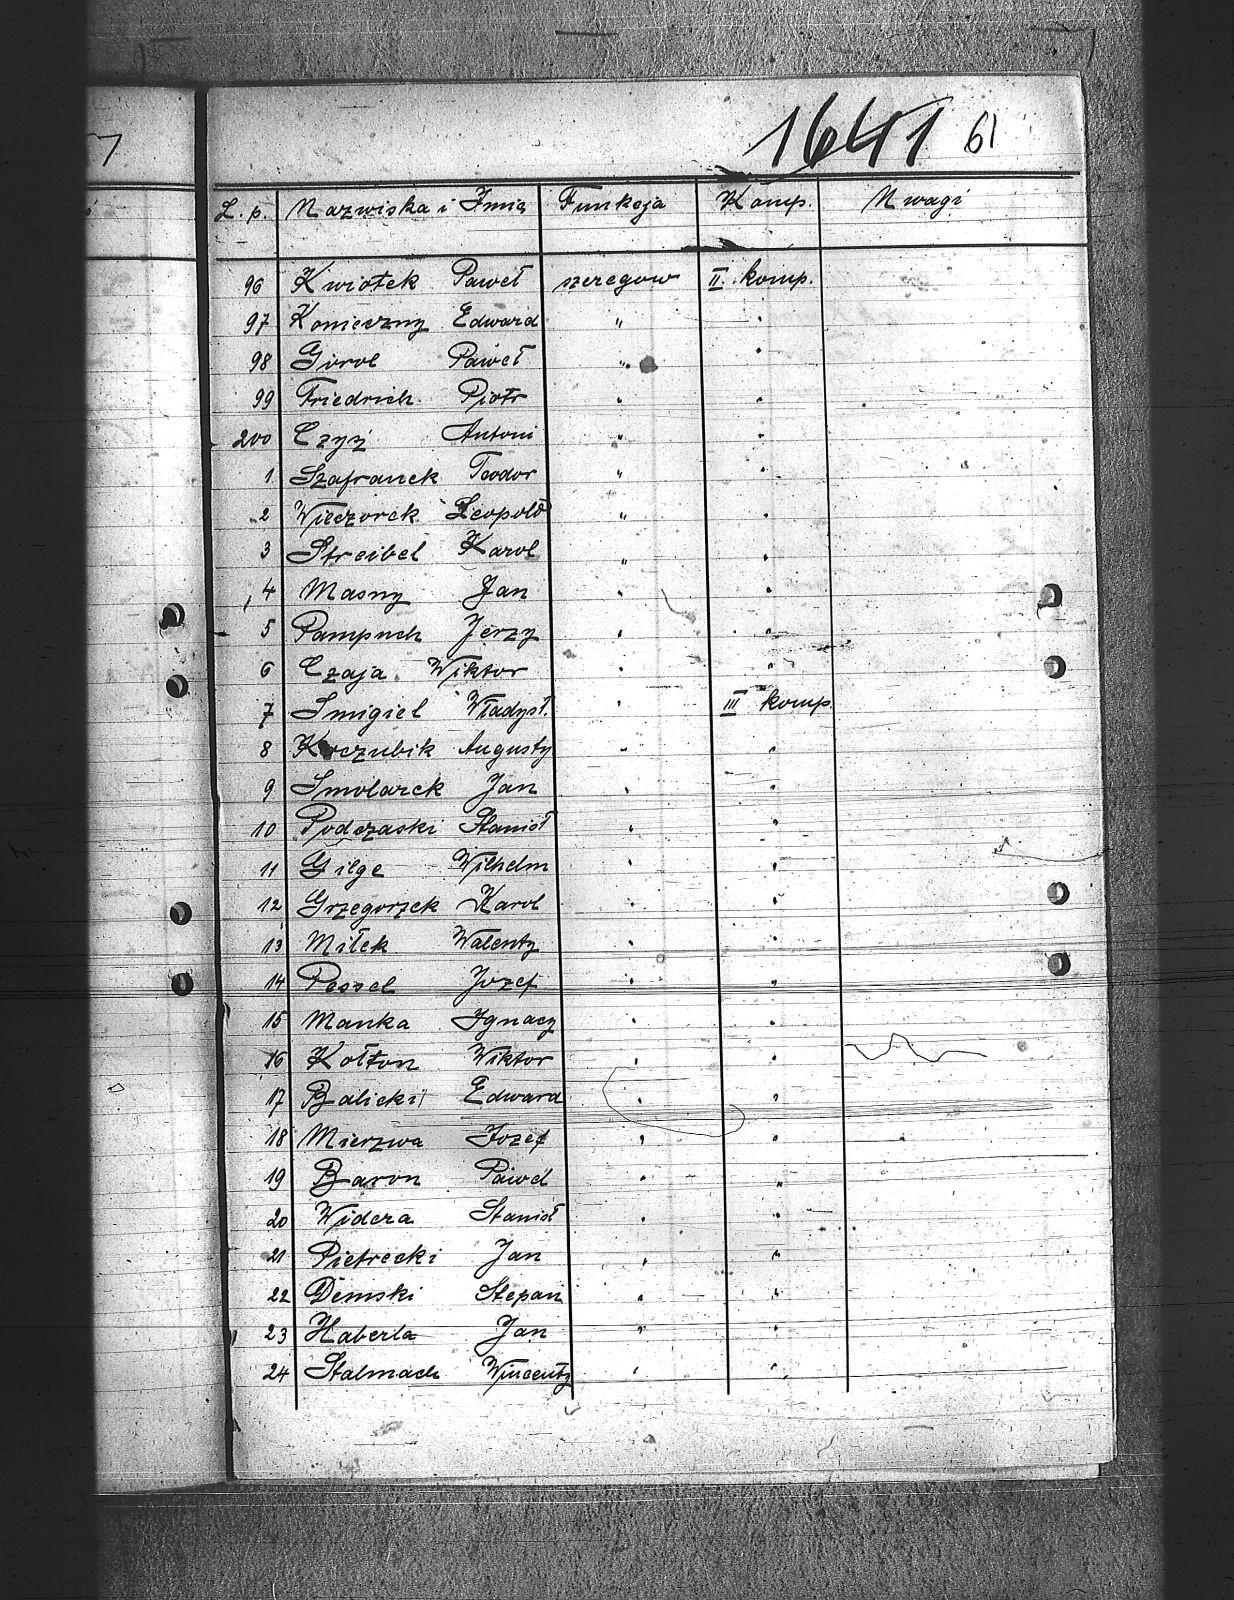 1641 61
L. p. Nazwiska i Imię Funkcja Komp. Uwagi
96 Kwiotek Paweł szeregow II. komp.
97 Konieczny Edward " "
98 Gorol Paweł " "
99 Friedrich Piotr " "
200 Czyż Antoni " "
1 Szafranek Teodor " "
2 Wieczorek Leopold " "
3 Streibel Karol " "
4 Masny Jan " "
5 Pampuch Jerzy " "
6 Czaja Wiktor " "
7 Smigiel Władysł. " III komp.
8 Koczubik Augusty " "
9 Smolarek Jan " "
10 Podczaski Stanisł " "
11 Gilge Wilhelm " "
12 Grzegorzek Karol " "
13 Miłek Walenty " "
14 Pessel Jozef " "
15 Manka Ignacy " "
16 Kołton Wiktor " "
17 Balicki Edward " "
18 Mierzwa Jozef " "
19 Baron Paweł " "
20 Widera Stanisł " "
21 Pietrecki Jan " "
22 Demski Stepan " "
23 Haberla Jan " "
24 Stalmach Wincenty " "